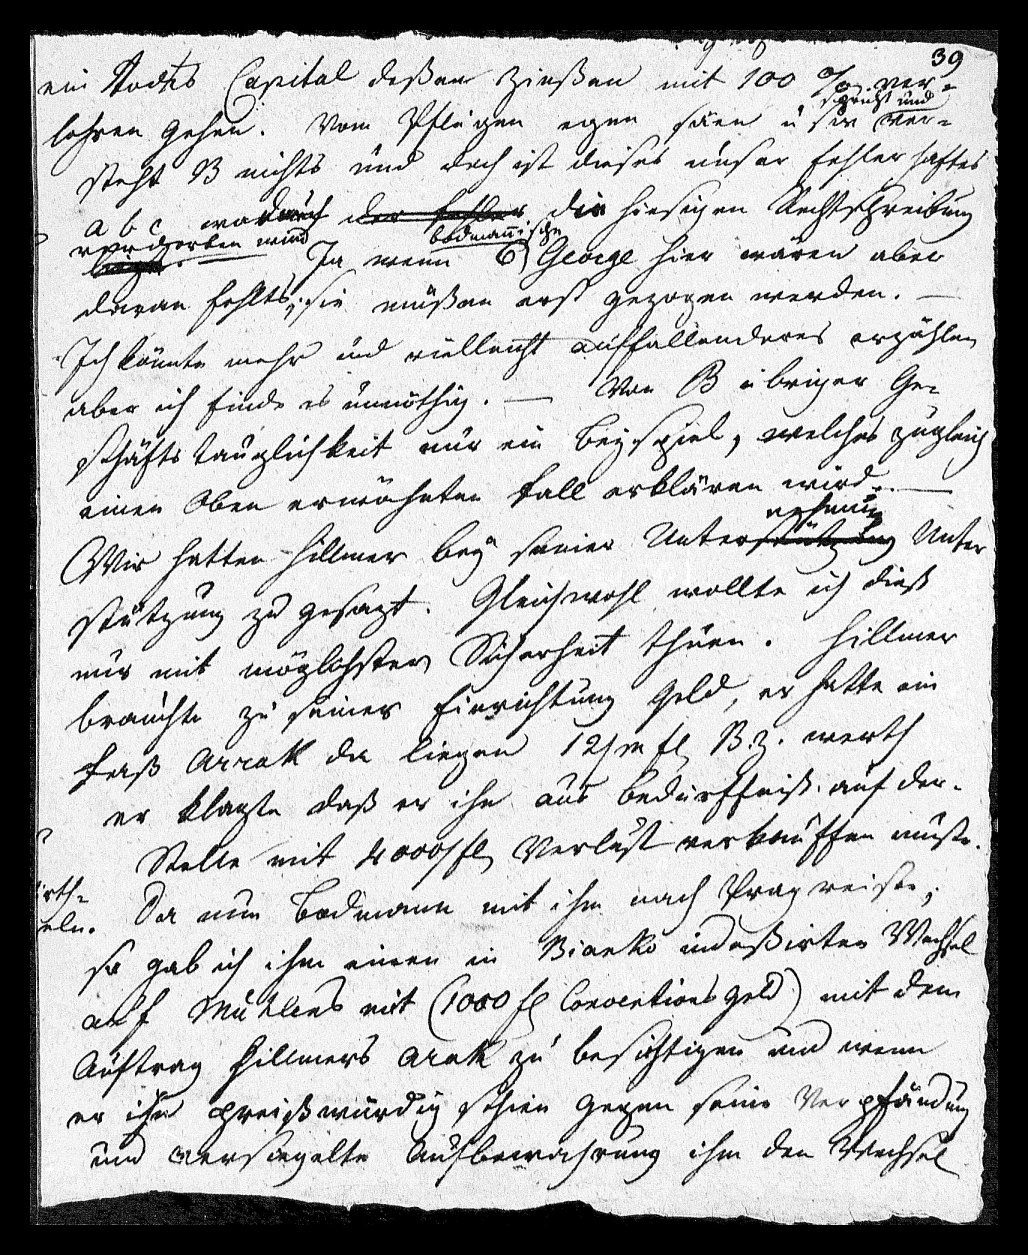 39
ein Todtes Capital deßen Zinßen mit 100 % ver-
lohren gehen. Vom Pflügen egen säen u s w ver-
spricht und
steht B nichts und doch ist dieses unser fehlerhaftes
a b c wodurch der fehler die hiesigen Rechtschreibung
verdorben wird bodmannische
liegt. Ja wenn 6 George hier wären aber
daran fehlts, sie müßen erst gezogen werden. —
Ich könnte mehr und vielleicht auffallenderes erzählen
aber ich finde es unnöthig. — Von B übriger Ge-
schäftstauglichkeit nur ein Beyspiel, welches zugleich
einen Oben erwähnten fall erklären wird. —
nehmung
Wir hatten Hillmer bey seiner Unterstützung Unter
stützung zu gesagt. Gleichwohl wollte ich dieß
nur mit möglichster Sicherheit thuen. Hillmer
brauchte zu seiner Einrichtung Geld, er hatte ein
faß Arrak da liegen 12/m fl B.z. werth
er klagte daß er ihn aus bedürffniß auf der
Stelle mit 4000 fl Verlust verkauffen müste.
Da nun Bodmann mit ihm nach Prag reiste;
so gab ich ihm einen in Bianko indoßirten Wechsel
auf Muhlens mit (1000 fl Conventions geld) mit dem
Auftrag Hillmers Arak zu besichtigen und wenn
er ihn preißwürdig schien gegen seine Verpfändung
und versiegelte Aufbewahrung ihm den Wechsel
rth-
eln.